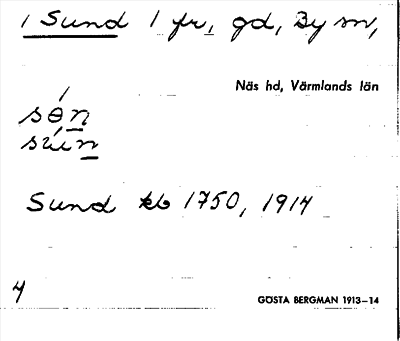 1 Sund 1 fr, gd, By sn,
Näs hd, Värmlands län
sún
Sund kb 1750, 1914
4
GÖSTA BERGMAN 1913–14